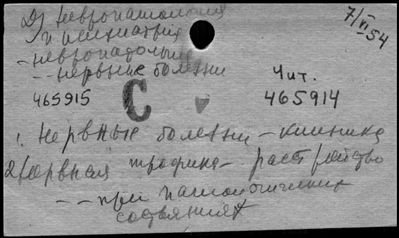 Д) Невропатология
и психиатрия
7/VI 54
- невропатология
- - нервные болезни
Чит.
465915
С
465914
1. Нервные болезни - клиника
2. Нервная трофика - расстройство
- - при патологических
состояниях